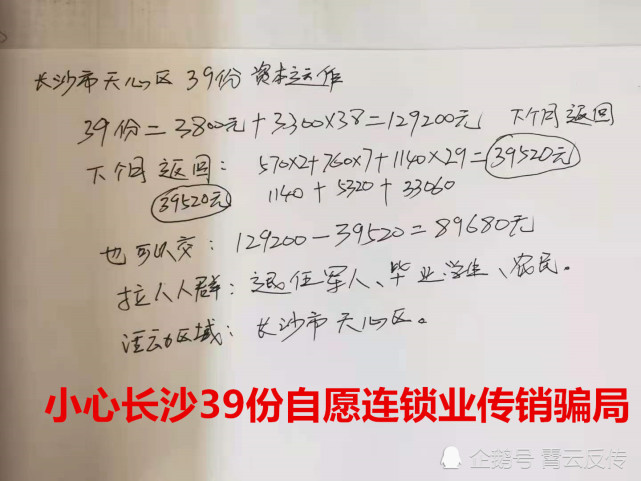 长沙市天心区 39份 资本运作
39份=3800元+3300×38=129200元 下个月返回
下个月返回: 570×2+760×7+1140×29=39520元
39520元 1140+5320+33060
也可以交: 129200-39520=89680元
拉人人群: 退伍军人、毕业学生、农民。
活动区域: 长沙市天心区。
小心长沙39份自愿连锁业传销骗局
企鹅号 霄云反传